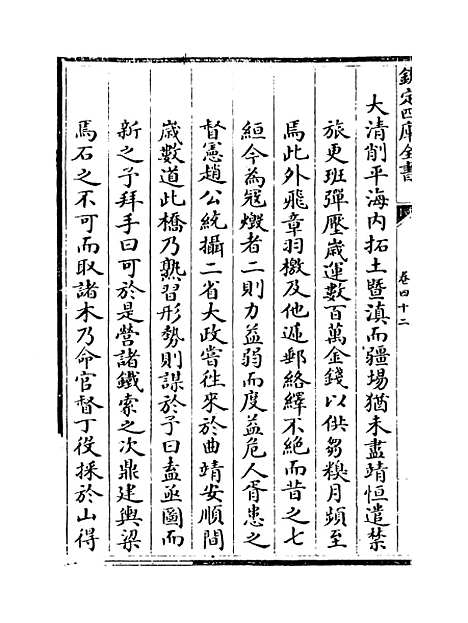 欽定四庫全書
卷四十二
大清削平海内拓土暨滇而疆場猶未盡靖恒遣禁
旅更班彈壓歲運數百萬金錢以供芻糗月頻至
焉此外飛章羽檄及他遞郵絡繹不絶而昔之七
絙今為寇燬者二則力益弱而度益危人胥患之
督憲趙公統攝二省大政嘗徃來於曲靖安順間
歲數道此橋乃熟習形勢則謀於予曰盍亟圖而
新之予拜手曰可於是營諸鐵索之次鼎建輿梁
焉石之不可而取諸木乃命官督丁役採於山得